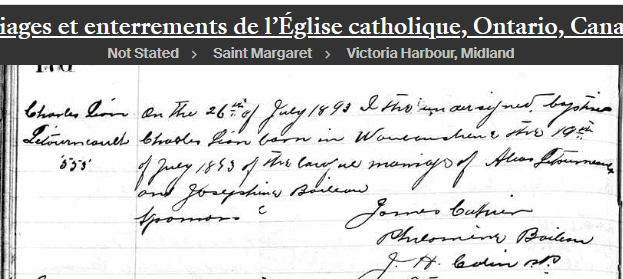 iages et enterrements de l'Église catholique, Ontario, Cana
Not Stated > Saint Margaret > Victoria Harbour, Midland
Charles Léon
Létourneault
533
On the 26th of July 1893 I the undersigned baptise
Charles Léon born in Waubaushene the 19th
of July 1893 of the lawful marriage of Létourneau
and Josephine Boileau
Sponsors
James
Philomène Boileau
J. H. Colin